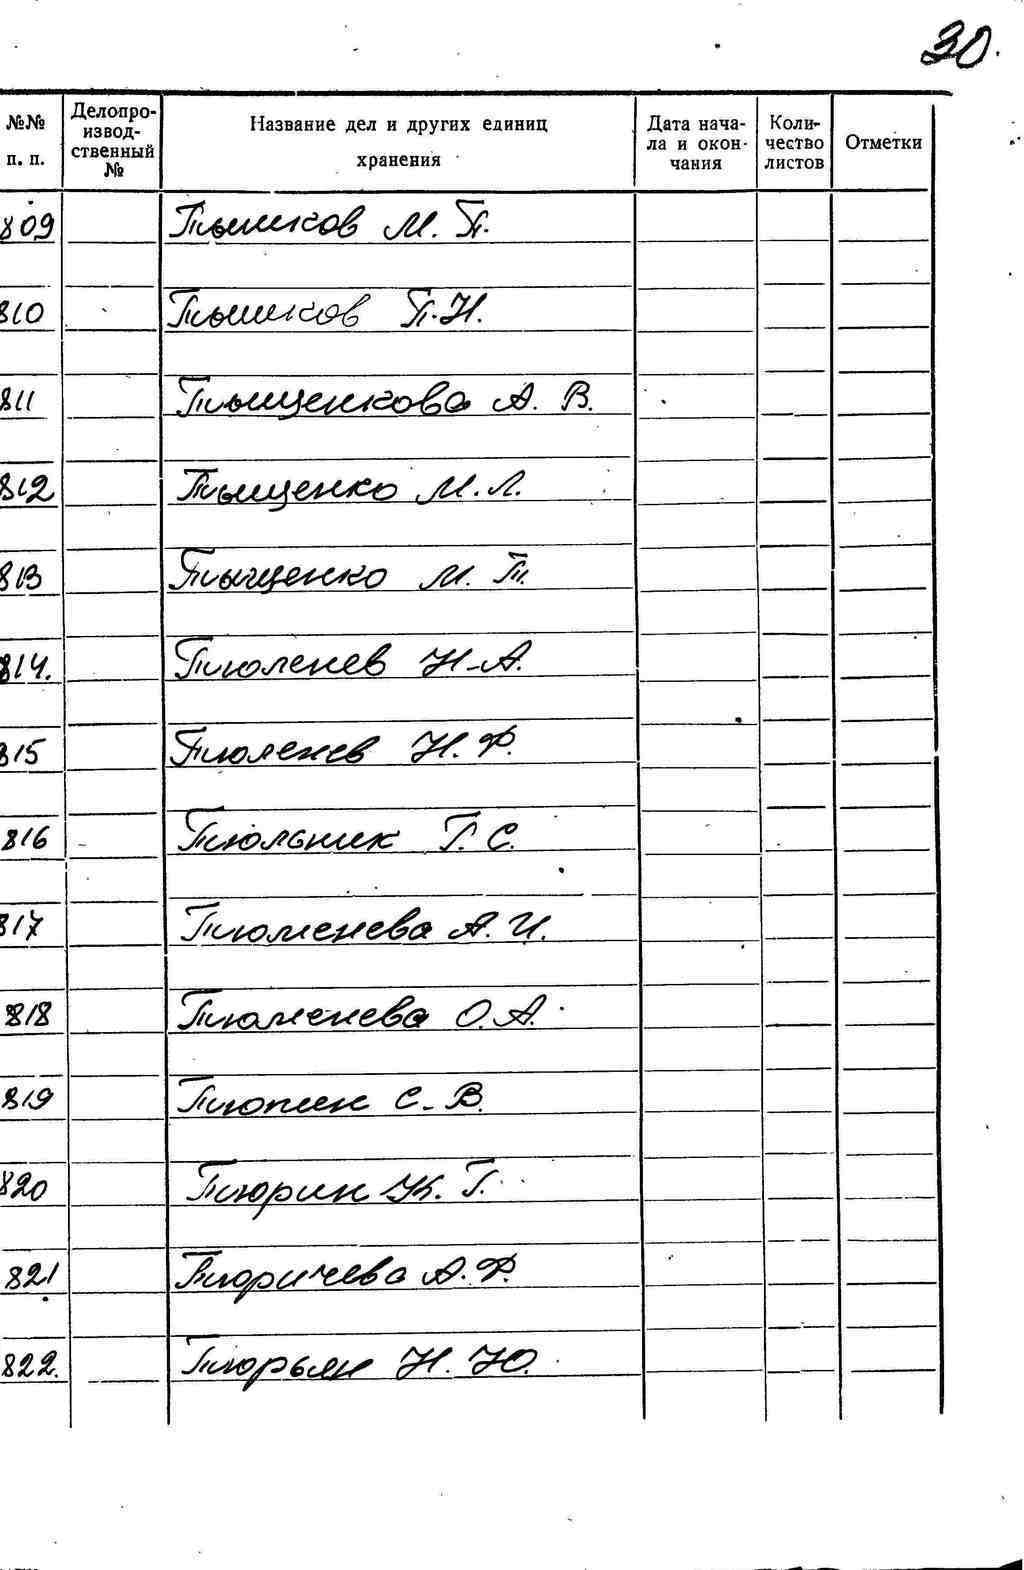 30.
№№ п. п. Делопроизводственный № Название дел и других единиц хранения Дата начала и окончания Количество листов Отметки
809 Тышков М. П.
810 Тышков П. Н.
811 Тыщенкова А. В.
812 Тыщенко М. Л.
813 Тыщенко М. Т.
814. Тюленев Н-А.
815 Тюленев Н. Ф.
816 Тюльник Г. С.
817 Тюменева А. И.
818 Тюменева О. А.
819 Тюпин С. В.
820 Тюрин К. Г.
821 Тюричева А. Ф.
822. Тюрьян Н. Ю.